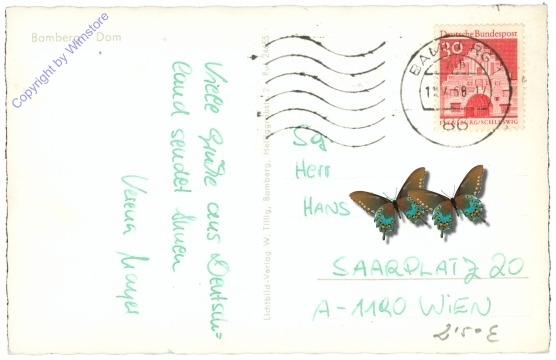 Bamberger Dom
Copyright by Wimstore
Viele Grüße aus Deutsch=
land sendet Ihnen
Verena Mayer
Lichtbild-Verlag W. Tillig, Bamberg,
Deutsche Bundespost
30
FLENSBURG/SCHLESWIG
BAMBERG
86
Herr
HANS
SAARPLATZ 20
A-1190 WIEN
2'50€